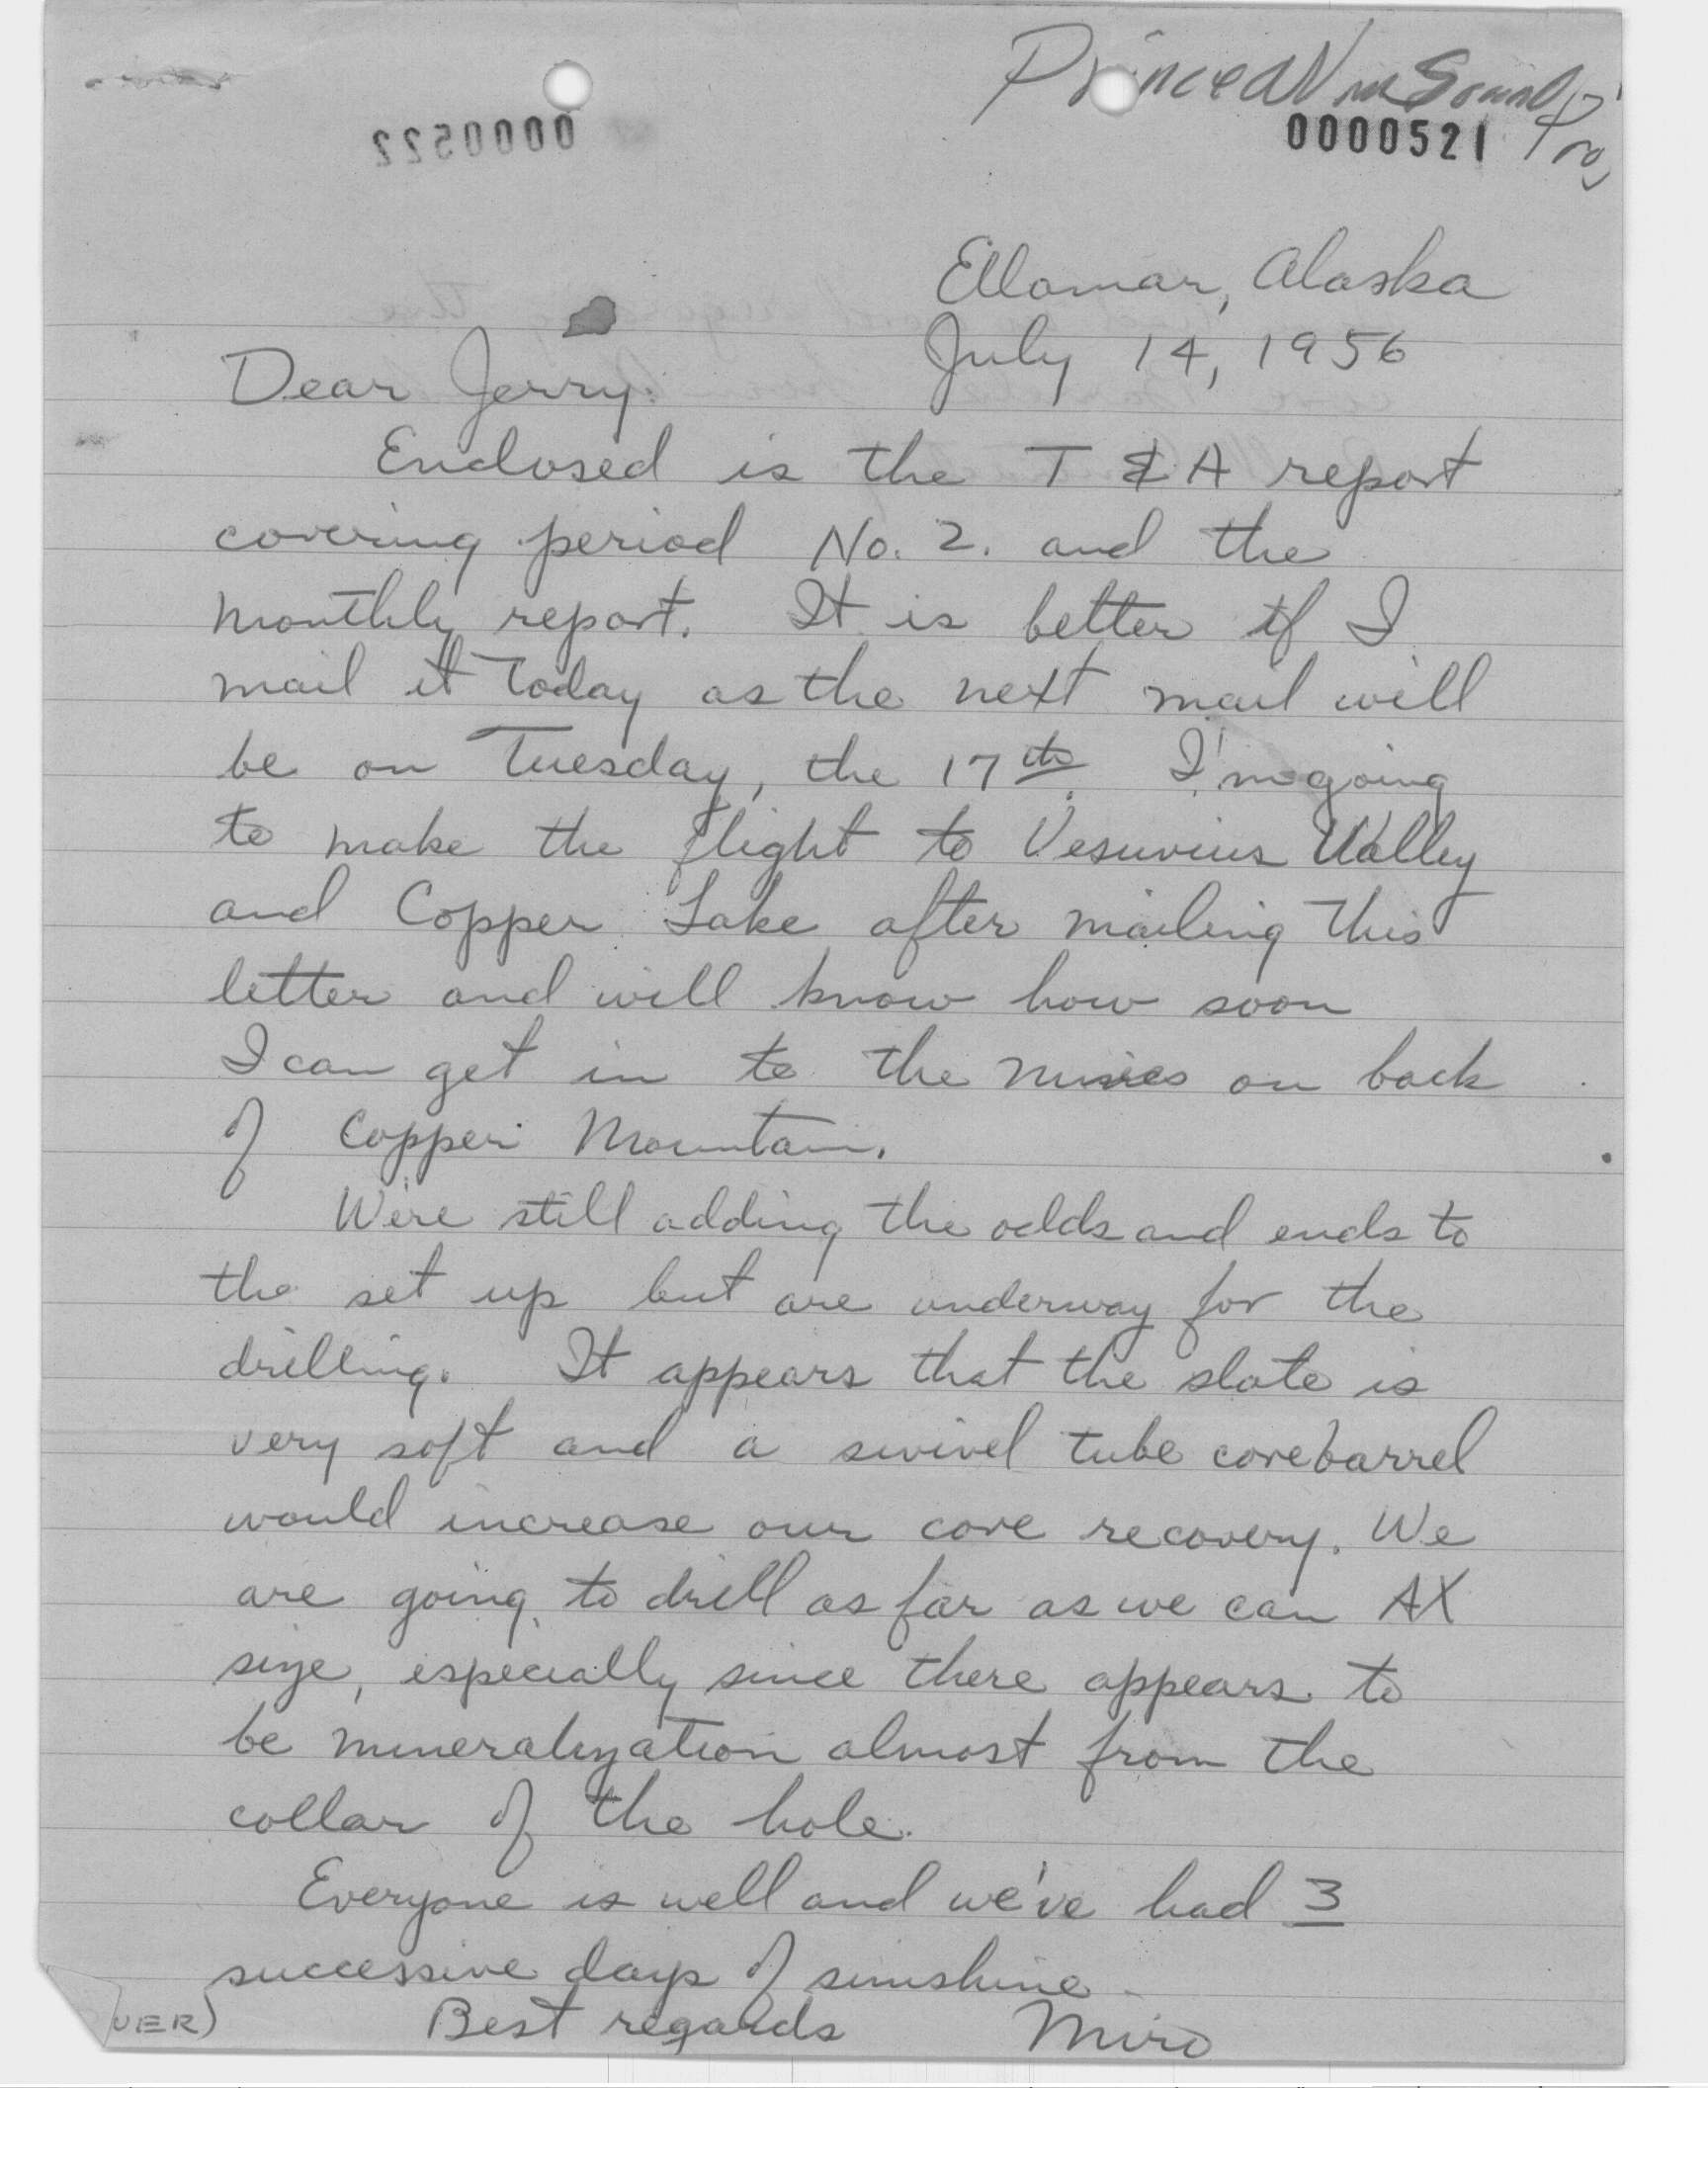 Prince Wm Sound
0000522
0000521
Ellamar, Alaska
July 14, 1956
Dear Jerry:
Enclosed is the T & A report
covering period No. 2. and the
monthly report. It is better if I
mail it today as the next mail will
be on Tuesday, the 17th. I'm going
to make the flight to Vesuvius Valley
and Copper Lake after mailing this
letter and will know how soon
I can get in to the mines on back
of Copper Mountain.
We're still adding the odds and ends to
the set up but are underway for the
drilling. It appears that the slate is
very soft and a swivel tube corebarrel
would increase our core recovery. We
are going to drill as far as we can AX
size, especially since there appears to
be mineralization almost from the
collar of the hole.
Everyone is well and we've had 3
successive days of sunshine.
Best regards Miro
VER)